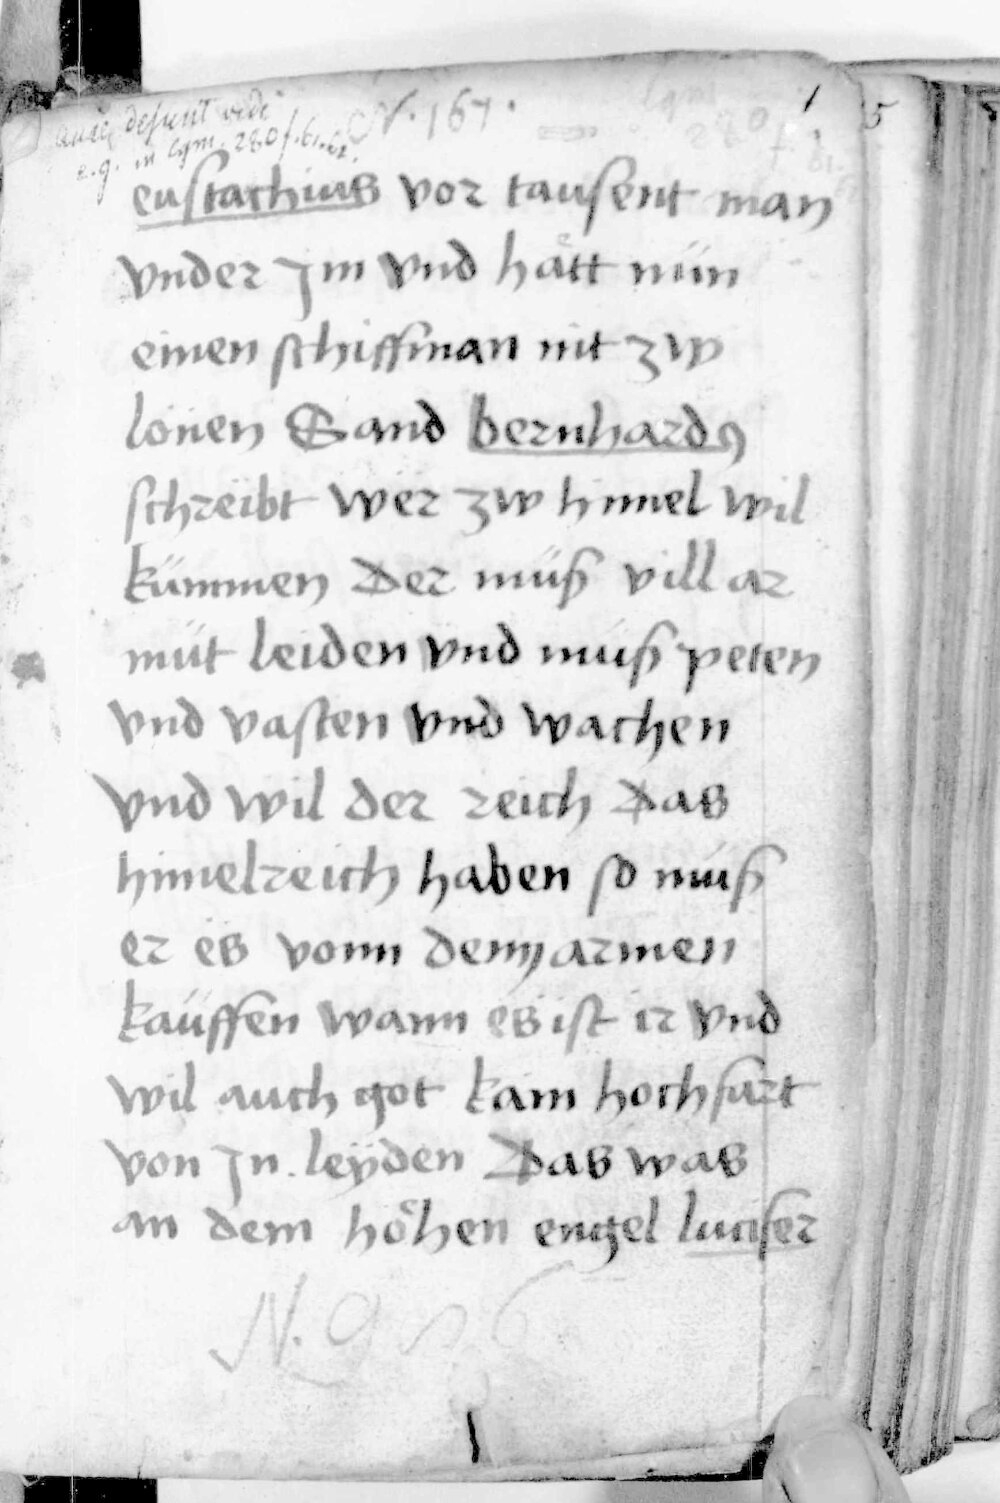 quae desunt vide N. 167. 1 5
e. g. in Cgm. 280 f. 61.
eustachius vor tausent man
vnder Jm vnd haͤtt nün
einen schiffman nit zw
lönen Sand bernhardꝰ
schreibt wër zw himel wil
kümmen Der müß vill ar
müt leiden vnd muß peten
vnd vasten vnd wachen
vnd wil der reich Das
himelreich haben so muß
er ës vonn dem armen
kauffen wann ës ist ir vnd
wil auch got kain hochfart
von Jn leÿden Das was
an dem hoͤhen engel lucifer
N.